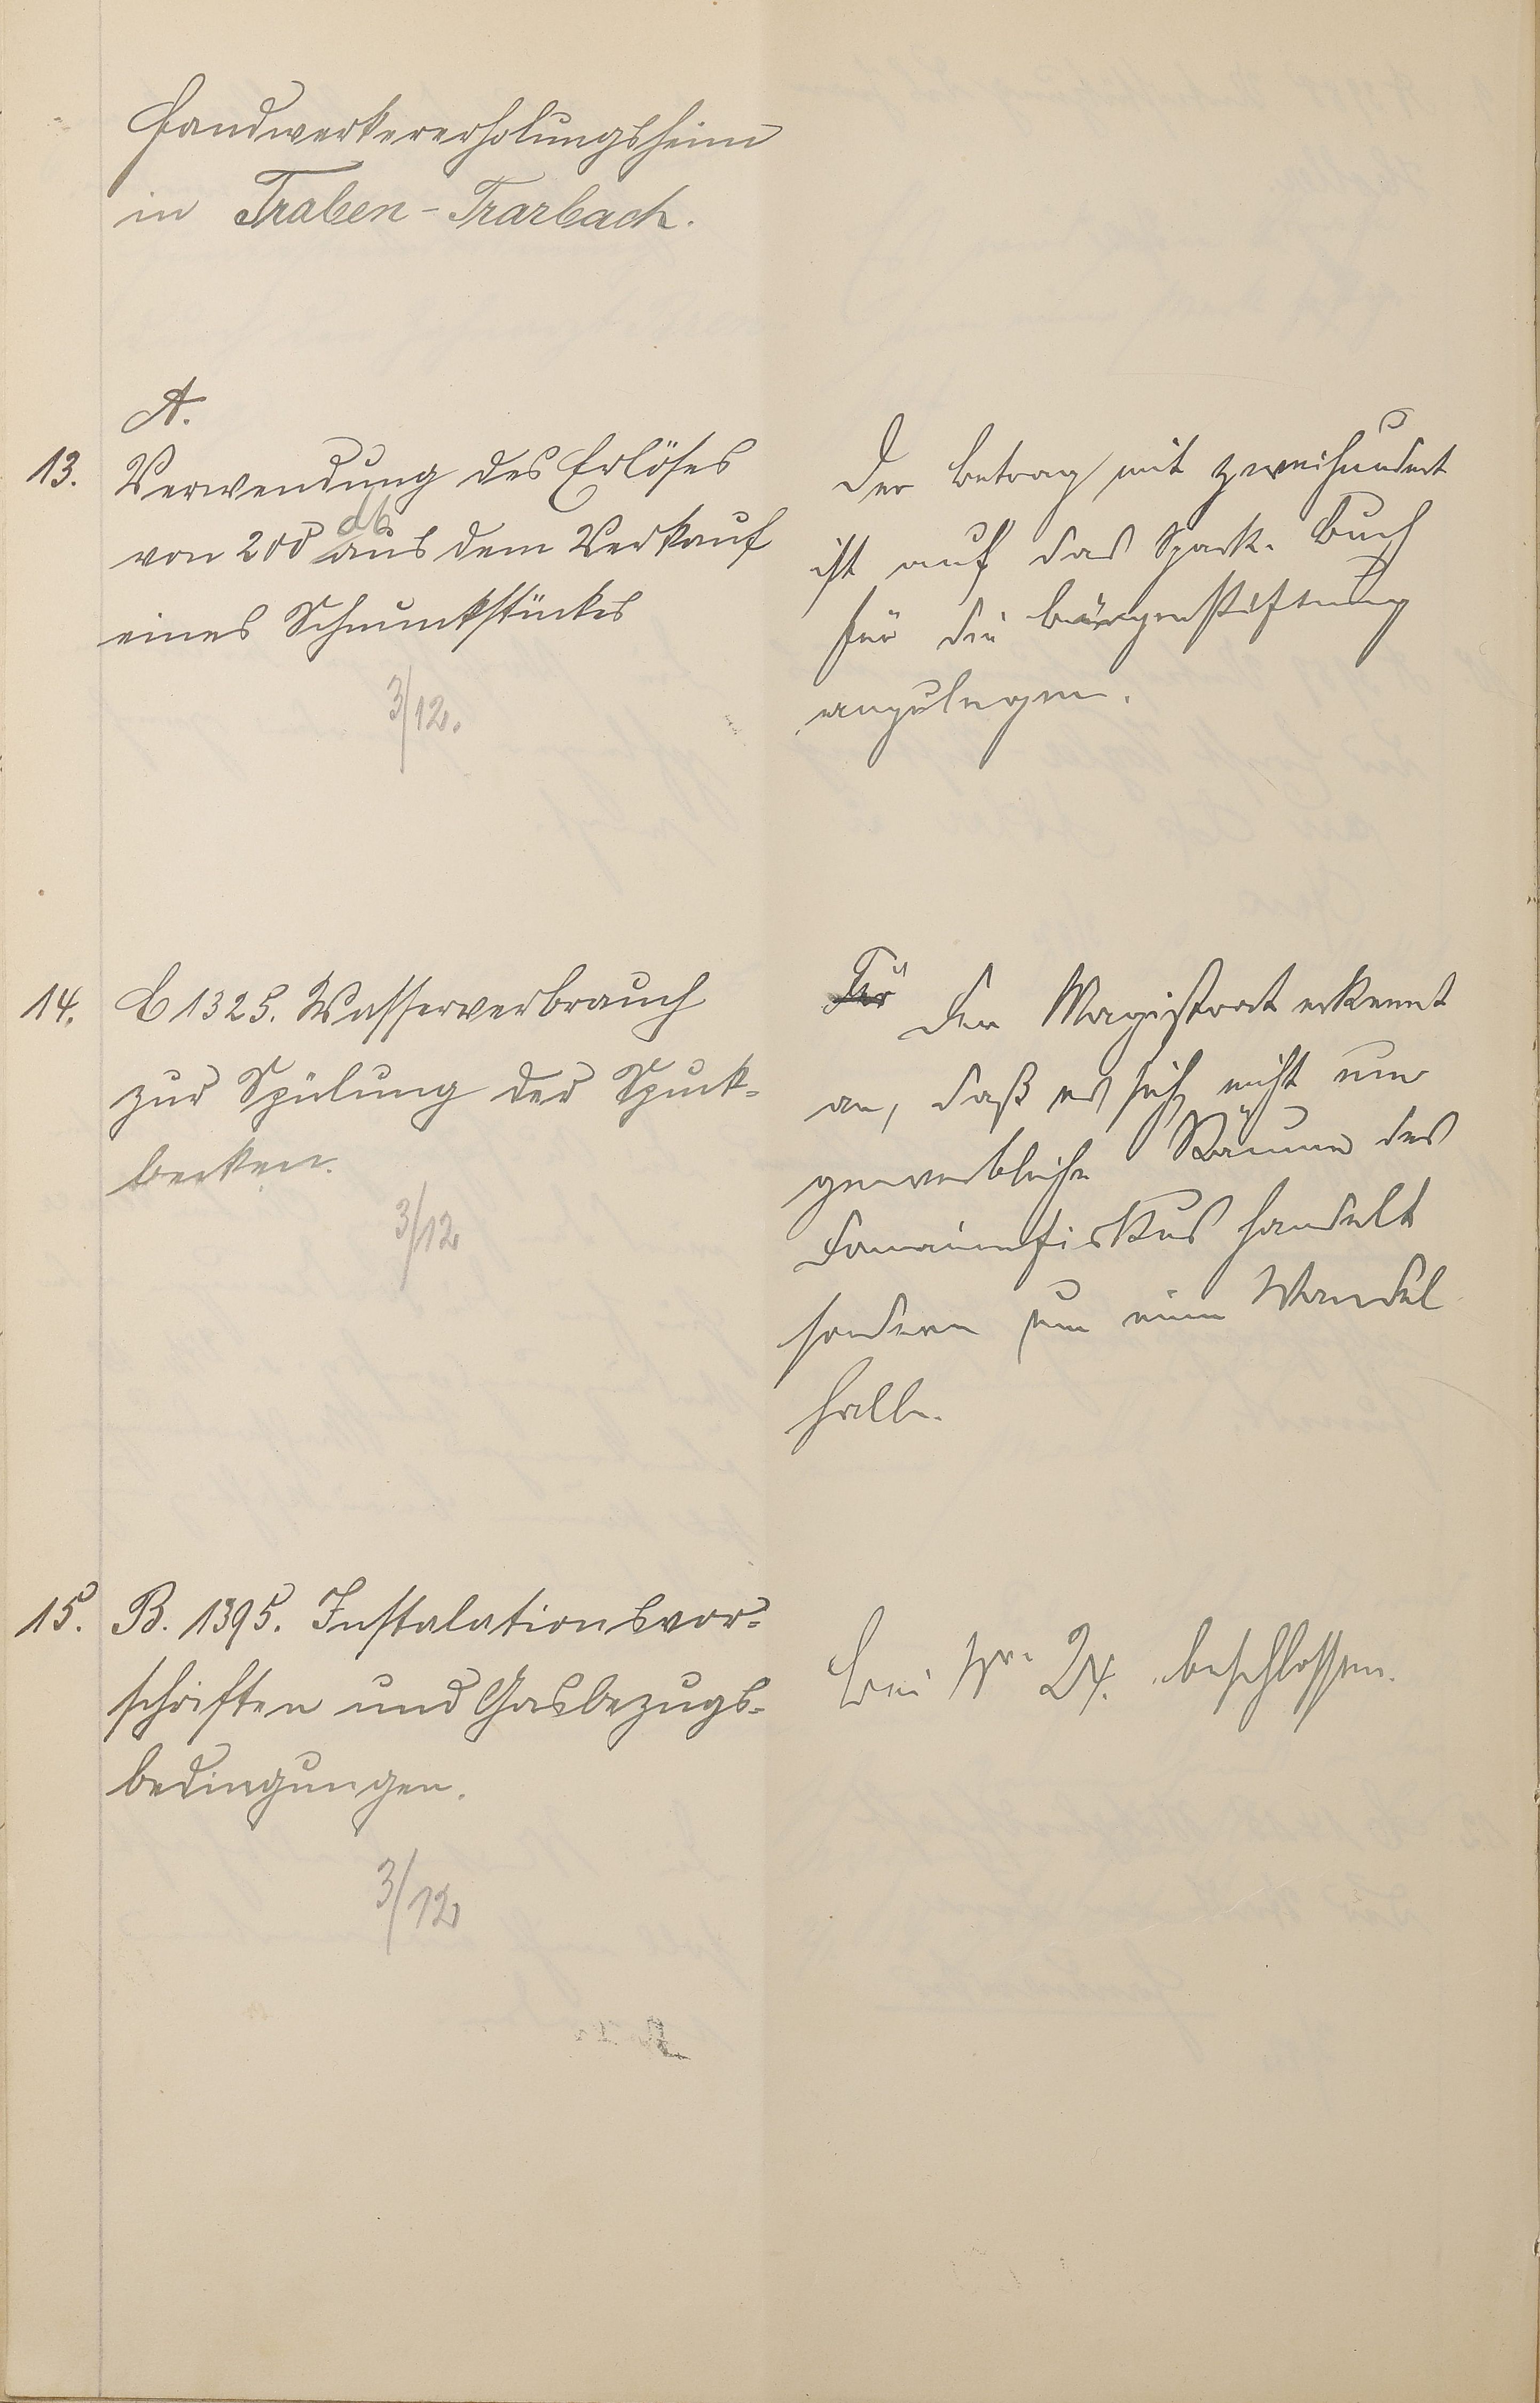 Handwerkererholungsheim
in Traben-Trarbach.
A.
13. Verwendung des Erlöses
von 200 M aus dem Verkauf
eines Schmuckstückes
3/12.
Der Betrag mit zweihundert
ist auf das Spark. Buch
für die Bürgerstiftung
anzulegen.
14. C 1325. Wasserverbrauch
zur Spülung der Spuck-
becken.
3/12
Für Der Magistrat erkennt
an, daß es sich nicht um
gewerbliche Räume des
Domainenfiskus handelt
sondern um eine Wandel
halle.
15. B. 1395. Instalationsvor-
schriften und Gasbezugs-
bedingungen.
3/12
bei Nr. 24. beschlossen.